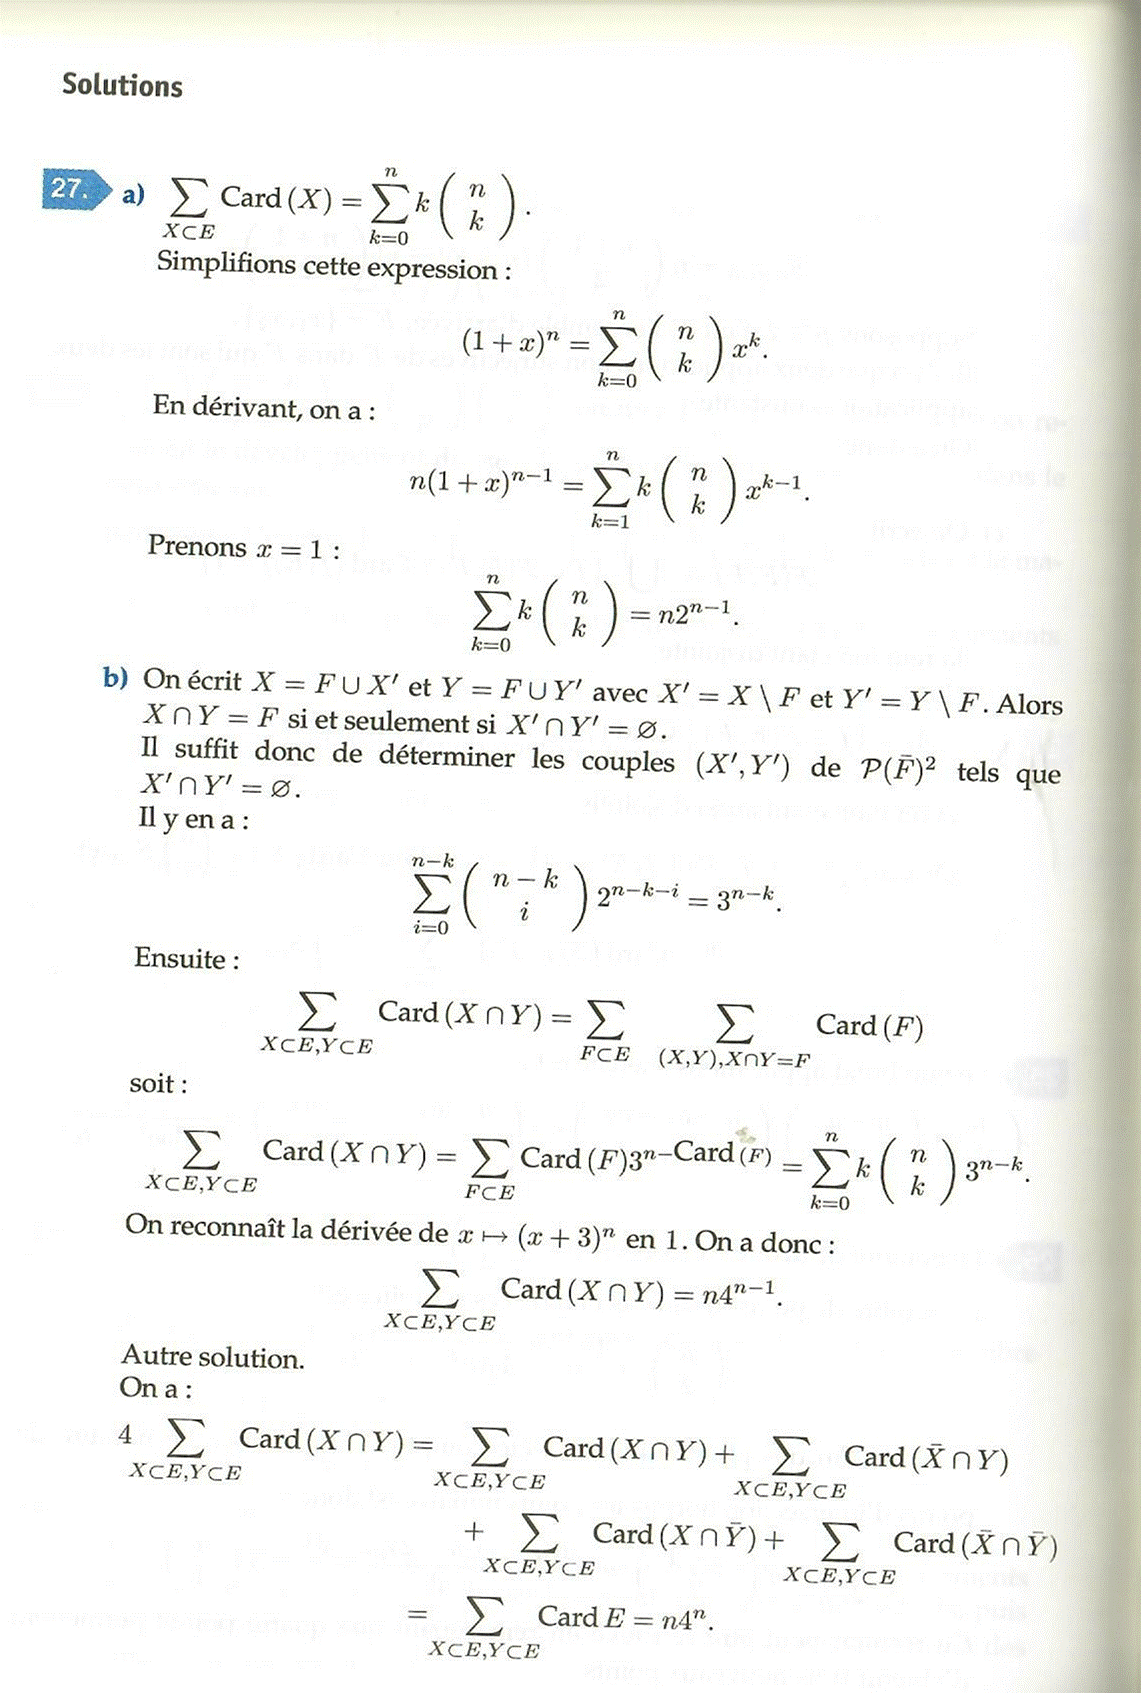 Solutions
27. a) $\sum_{X \subset E} \text{Card}(X) = \sum_{k=0}^{n} k \binom{n}{k}.$
Simplifions cette expression :
$(1+x)^n = \sum_{k=0}^{n} \binom{n}{k} x^k.$
En dérivant, on a :
$n(1+x)^{n-1} = \sum_{k=1}^{n} k \binom{n}{k} x^{k-1}.$
Prenons $x = 1$ :
$\sum_{k=0}^{n} k \binom{n}{k} = n2^{n-1}.$
b) On écrit $X = F \cup X'$ et $Y = F \cup Y'$ avec $X' = X \setminus F$ et $Y' = Y \setminus F$. Alors
$X \cap Y = F$ si et seulement si $X' \cap Y' = \varnothing$.
Il suffit donc de déterminer les couples $(X', Y')$ de $\mathcal{P}(\bar{F})^2$ tels que
$X' \cap Y' = \varnothing$.
Il y en a :
$\sum_{i=0}^{n-k} \binom{n-k}{i} 2^{n-k-i} = 3^{n-k}.$
Ensuite :
$\sum_{X \subset E, Y \subset E} \text{Card}(X \cap Y) = \sum_{F \subset E} \sum_{(X,Y), X \cap Y = F} \text{Card}(F)$
soit :
$\sum_{X \subset E, Y \subset E} \text{Card}(X \cap Y) = \sum_{F \subset E} \text{Card}(F) 3^{n-\text{Card}(F)} = \sum_{k=0}^{n} k \binom{n}{k} 3^{n-k}.$
On reconnaît la dérivée de $x \mapsto (x+3)^n$ en 1. On a donc :
$\sum_{X \subset E, Y \subset E} \text{Card}(X \cap Y) = n4^{n-1}.$
Autre solution.
On a :
$4 \sum_{X \subset E, Y \subset E} \text{Card}(X \cap Y) = \sum_{X \subset E, Y \subset E} \text{Card}(X \cap Y) + \sum_{X \subset E, Y \subset E} \text{Card}(\bar{X} \cap Y)$
$+ \sum_{X \subset E, Y \subset E} \text{Card}(X \cap \bar{Y}) + \sum_{X \subset E, Y \subset E} \text{Card}(\bar{X} \cap \bar{Y})$
$= \sum_{X \subset E, Y \subset E} \text{Card} E = n4^n.$